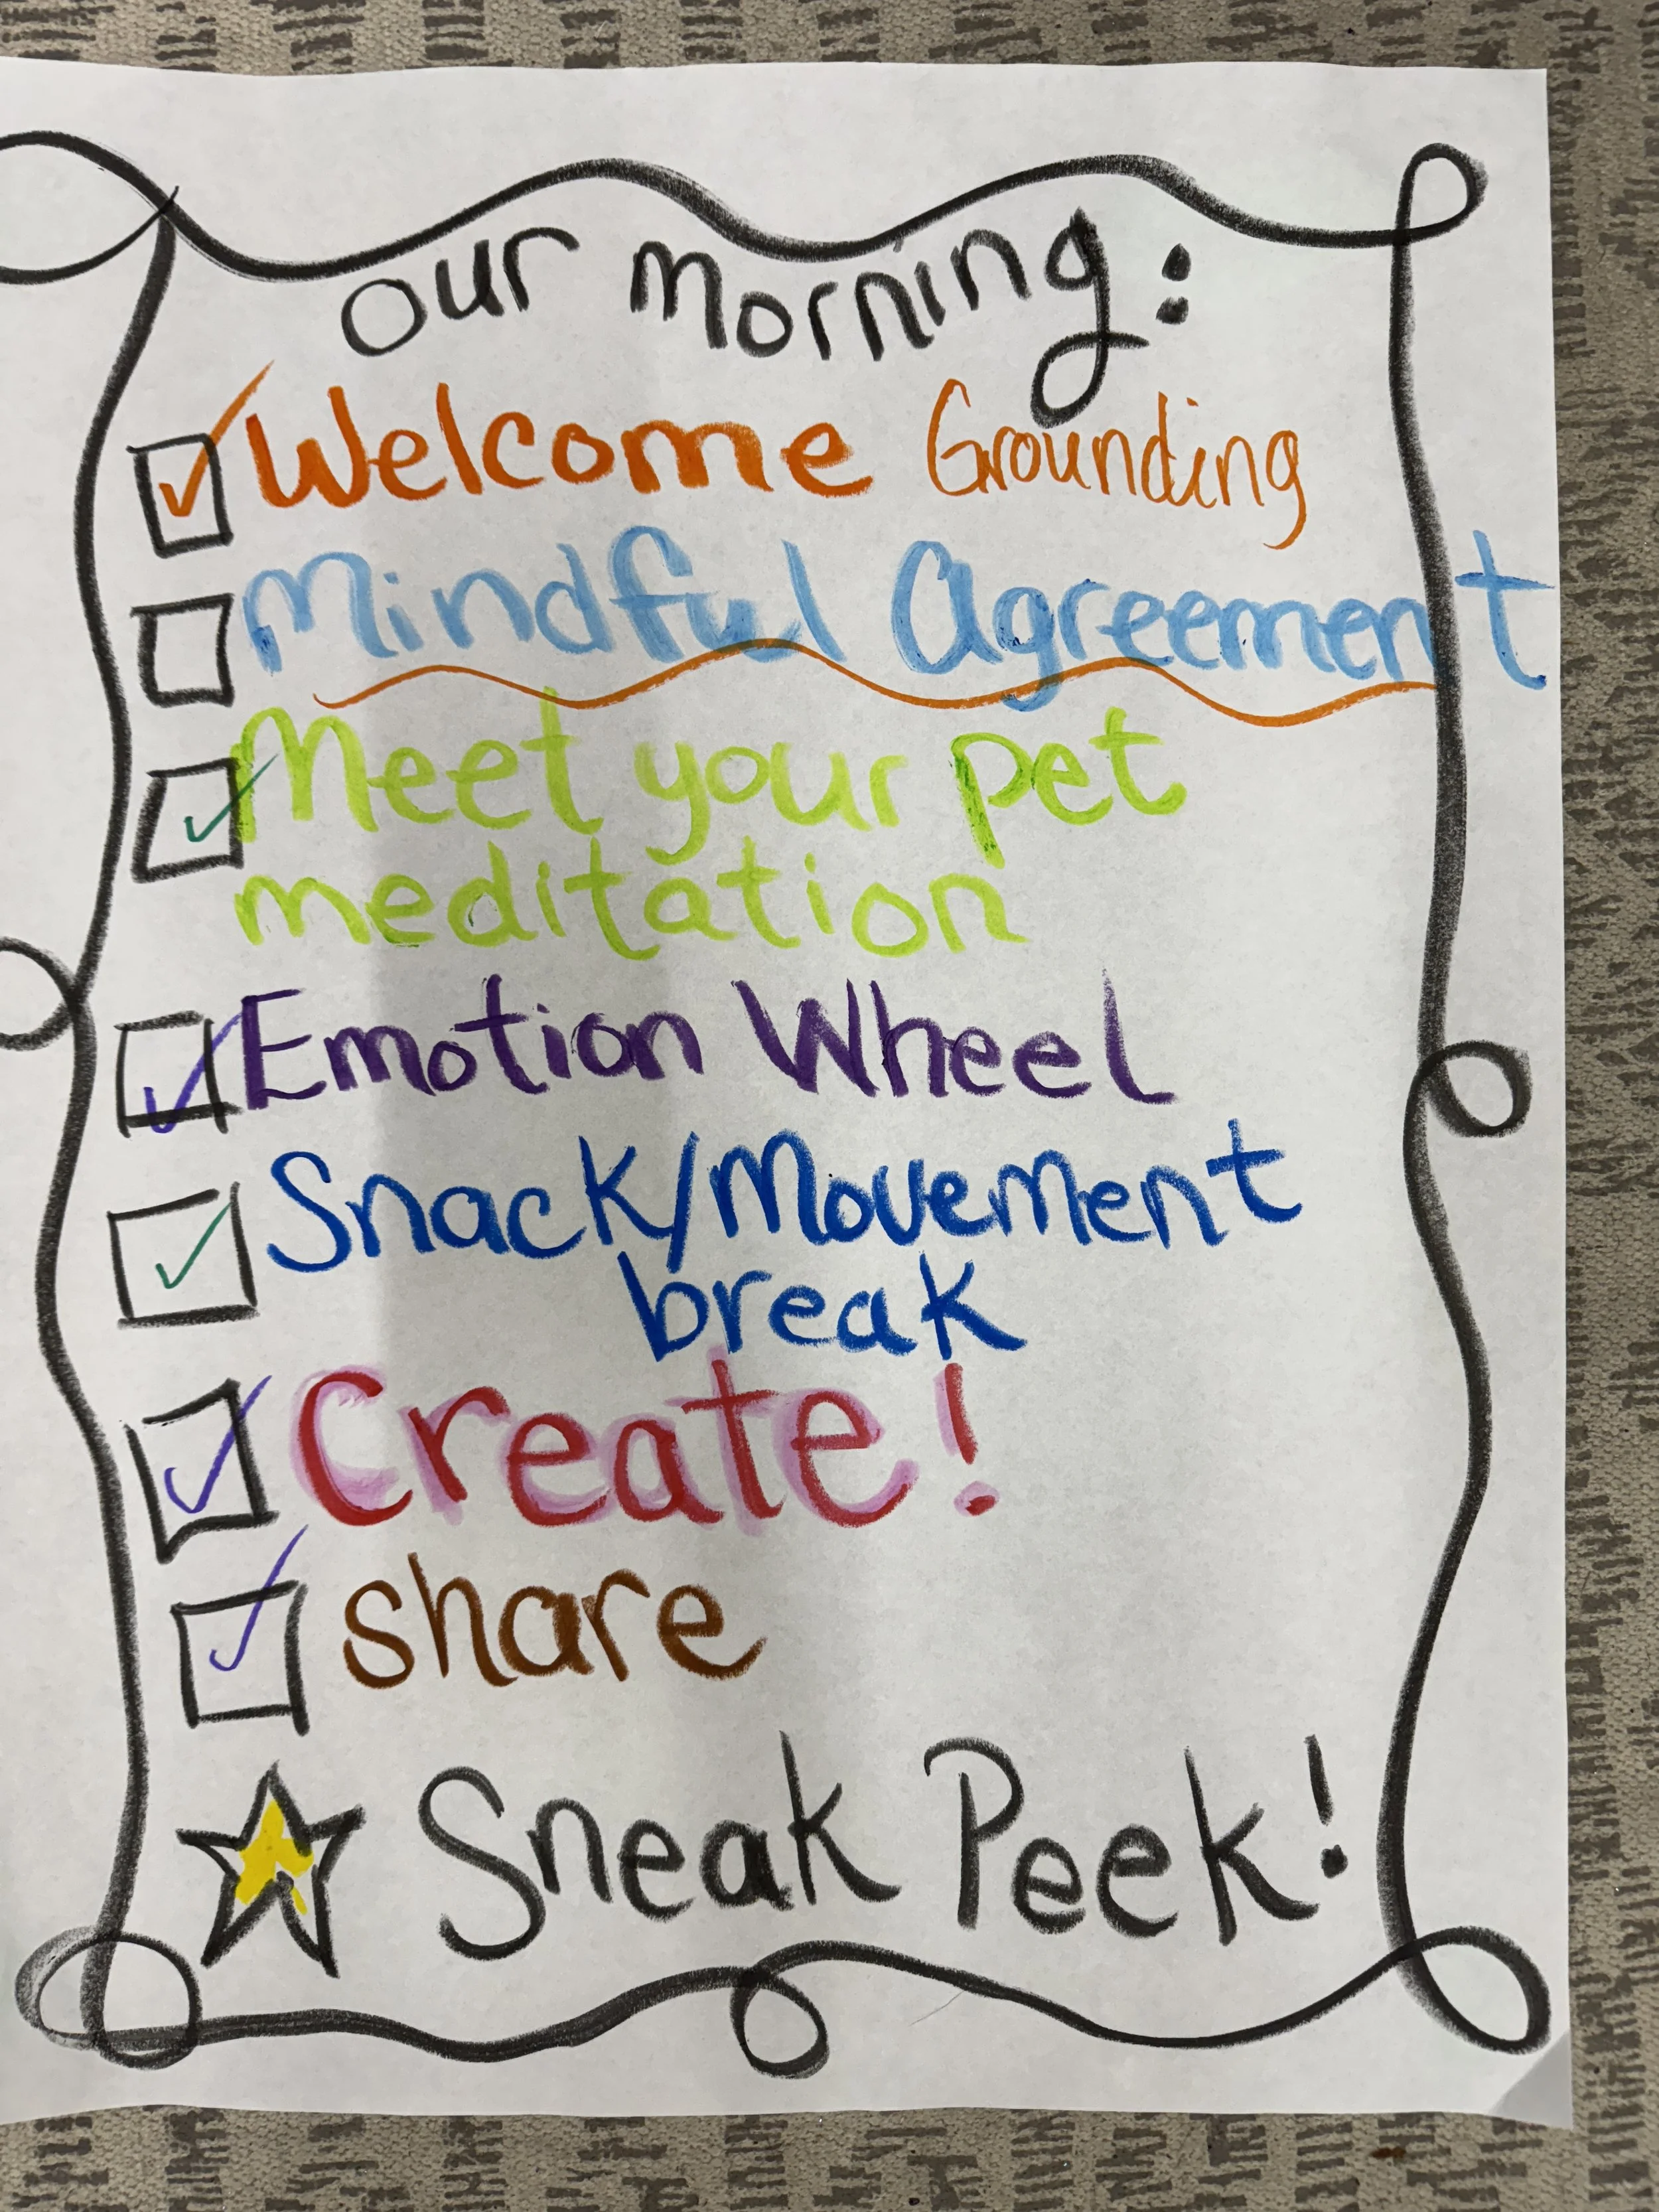 our morning:
Welcome Grounding
Mindful Agreement
Meet your pet
meditation
Emotion Wheel
Snack/Movement
break
Create!
share
Sneak Peek!